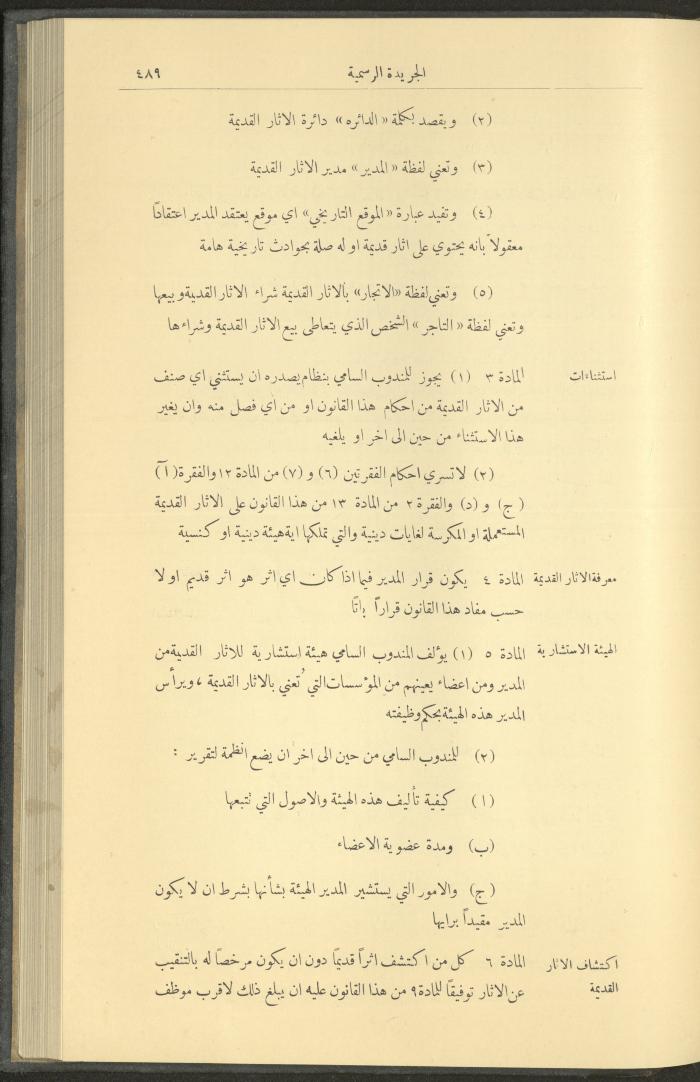 الجريدة الرسمية ٤٨٩
(٢) ويقصد بكلمة «الدائره» دائرة الاثار القديمة
(٣) وتعني لفظة «المدير» مدير الاثار القديمة
(٤) وتفيد عبارة «الموقع التاريخي» اي موقع يعتقد المدير اعتقادًا
معقولاً بانه يحتوي على اثار قديمة او له صلة بحوادث تاريخية هامة
(٥) وتعني لفظة «الاتجار» بالاثار القديمة شراء الاثار القديمة وبيعها
وتعني لفظة «التاجر» الشخص الذي يتعاطى بيع الاثار القديمة وشراءها
استثناءات المادة ٣ (١) يجوز للمندوب السامي بنظام يصدره ان يستثني اي صنف
من الاثار القديمة من احكام هذا القانون او من اي فصل منه وان يغير
هذا الاستثناء من حين الى اخر او يلغيه
(٢) لا تسري احكام الفقرتين (٦) و (٧) من المادة ١٢ والفقرة (آ)
(ج) و (د) والفقرة ٢ من المادة ١٣ من هذا القانون على الاثار القديمة
المستعملة او المكرسة لغايات دينية والتي تملكها اية هيئة دينية او كنسية
معرفة الاثار القديمة المادة ٤ يكون قرار المدير فيما اذا كان اي اثر هو اثر قديم او لا
حسب مفاد هذا القانون قراراً باتًا
الهيئة الاستشارية المادة ٥ (١) يؤلف المندوب السامي هيئة استشارية للاثار القديمة من
المدير ومن اعضاء يعينهم من المؤسسات التي تُعني بالاثار القديمة، ويرأس
المدير هذه الهيئة بحكم وظيفته
(٢) للمندوب السامي من حين الى اخر ان يضع انظمة لتقرير :
(ا) كيفية تأليف هذه الهيئة والاصول التي تتبعها
(ب) ومدة عضوية الاعضاء
(ج) والامور التي يستشير المدير الهيئة بشأنها بشرط ان لا يكون
المدير مقيداً برايها
اكتشاف الاثار المادة ٦ كل من اكتشف اثراً قديمًا دون ان يكون مرخصًا له بالتنقيب
القديمة عن الاثار توفيقًا للمادة ٩ من هذا القانون عليه ان يبلغ ذلك لاقرب موظف